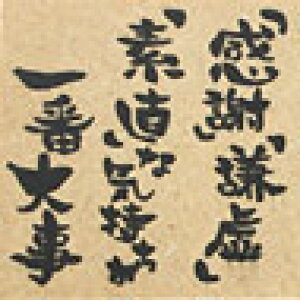 「感謝」「謙虚」
「素」直な気持ちが
一番大事